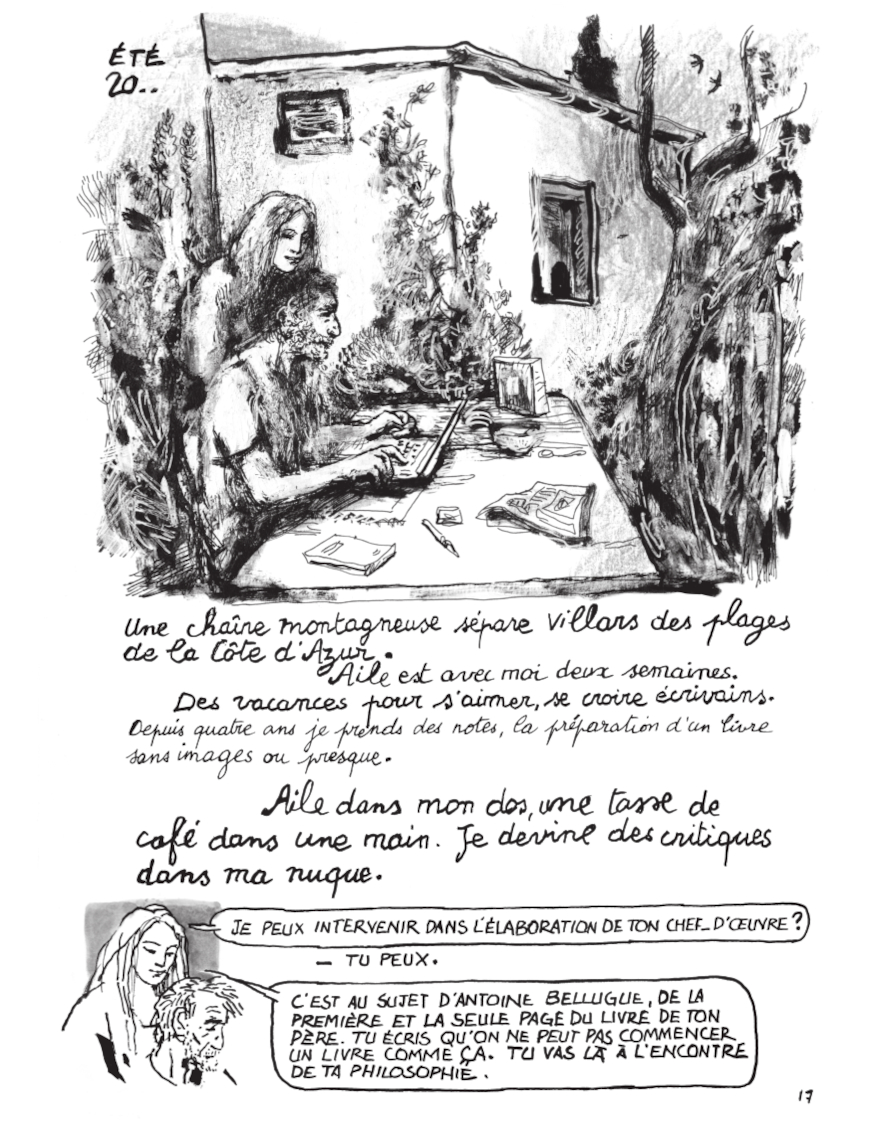 ÉTÉ
20..
Une chaîne montagneuse sépare Villars des plages
de la Côte d'Azur.
Aile est avec moi deux semaines.
Des vacances pour s'aimer, se croire écrivains.
Depuis quatre ans je prends des notes, la préparation d'un livre
sans images ou presque.
Aile dans mon dos, une tasse de
café dans une main. Je devine des critiques
dans ma nuque.
JE PEUX INTERVENIR DANS L'ÉLABORATION DE TON CHEF-D'ŒUVRE?
– TU PEUX.
C'EST AU SUJET D'ANTOINE BELLUGUE, DE LA
PREMIÈRE ET LA SEULE PAGE DU LIVRE DE TON
PÈRE. TU ÉCRIS QU'ON NE PEUT PAS COMMENCER
UN LIVRE COMME ÇA. TU VAS LÀ À L'ENCONTRE
DE TA PHILOSOPHIE.
17